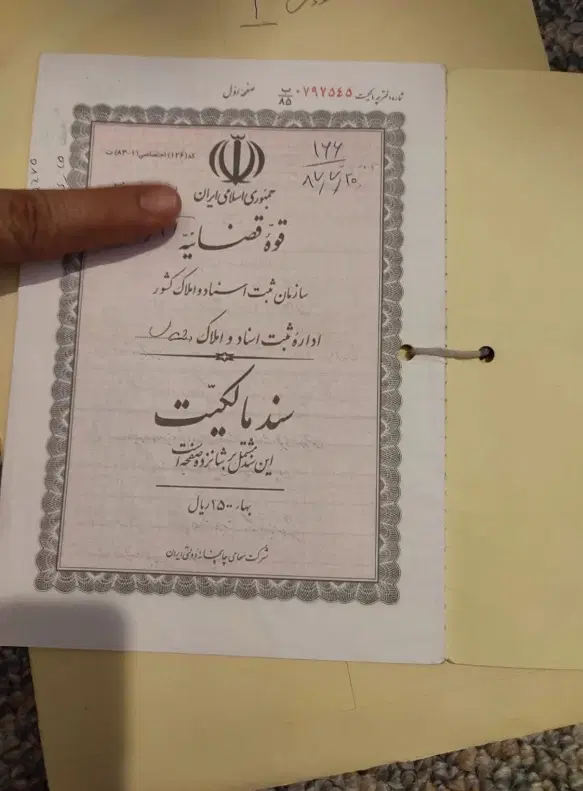 شماره دفترچه مالکیت ۰۷۹۷۵۴۵ ب/۸۵ صفحه اول
کد (۱۲۶) اختصاصی (۱-۸۳) ت
۱۶۶
۸۷/۷/۲۰
جمهوری اسلامی ایران
قوهٔ قضائیّه
سازمان ثبت اسناد و املاک کشور
ادارهٔ ثبت اسناد و املاک
سند مالکیّت
این سند مشتمل بر شانزده صفحه است
بهاء ۲۵۰۰ ریال
شرکت سهامی چاپخانه دولتی ایران